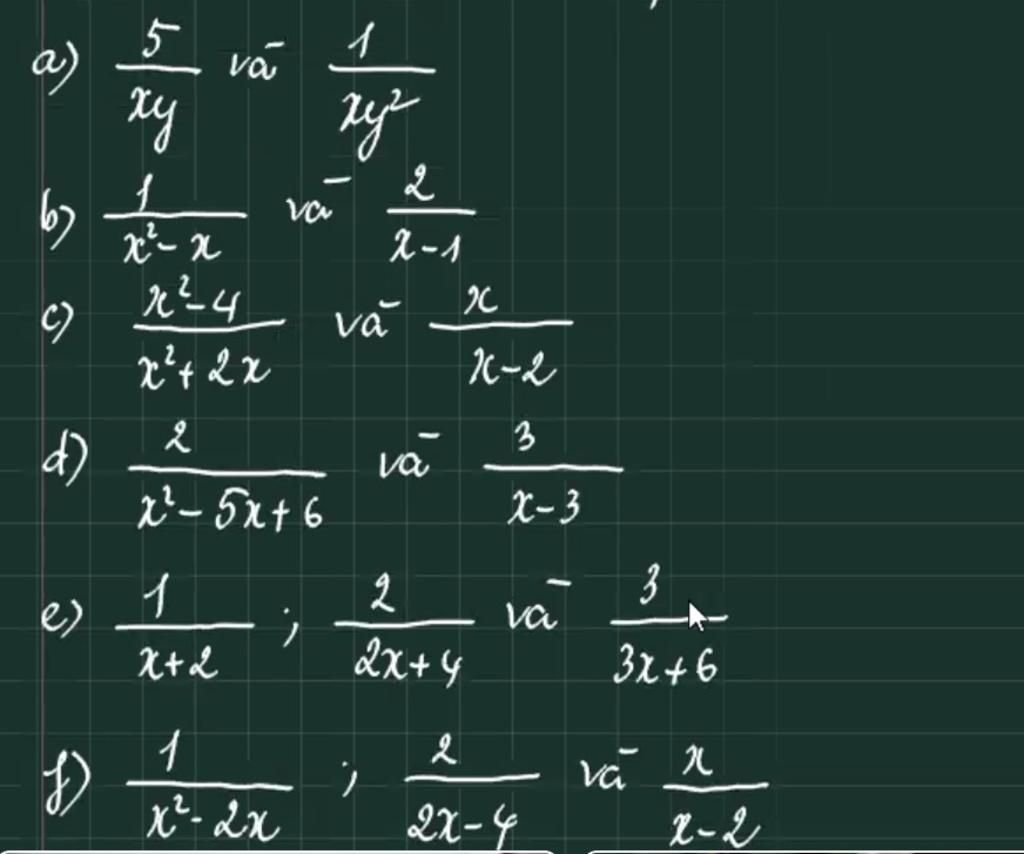 a) 5/xy và 1/xy²
b) 1/(x²-x) và 2/(x-1)
c) (x²-4)/(x²+2x) và x/(x-2)
d) 2/(x²-5x+6) và 3/(x-3)
e) 1/(x+2) ; 2/(2x+4) và 3/(3x+6)
f) 1/(x²-2x) ; 2/(2x-4) và x/(x-2)